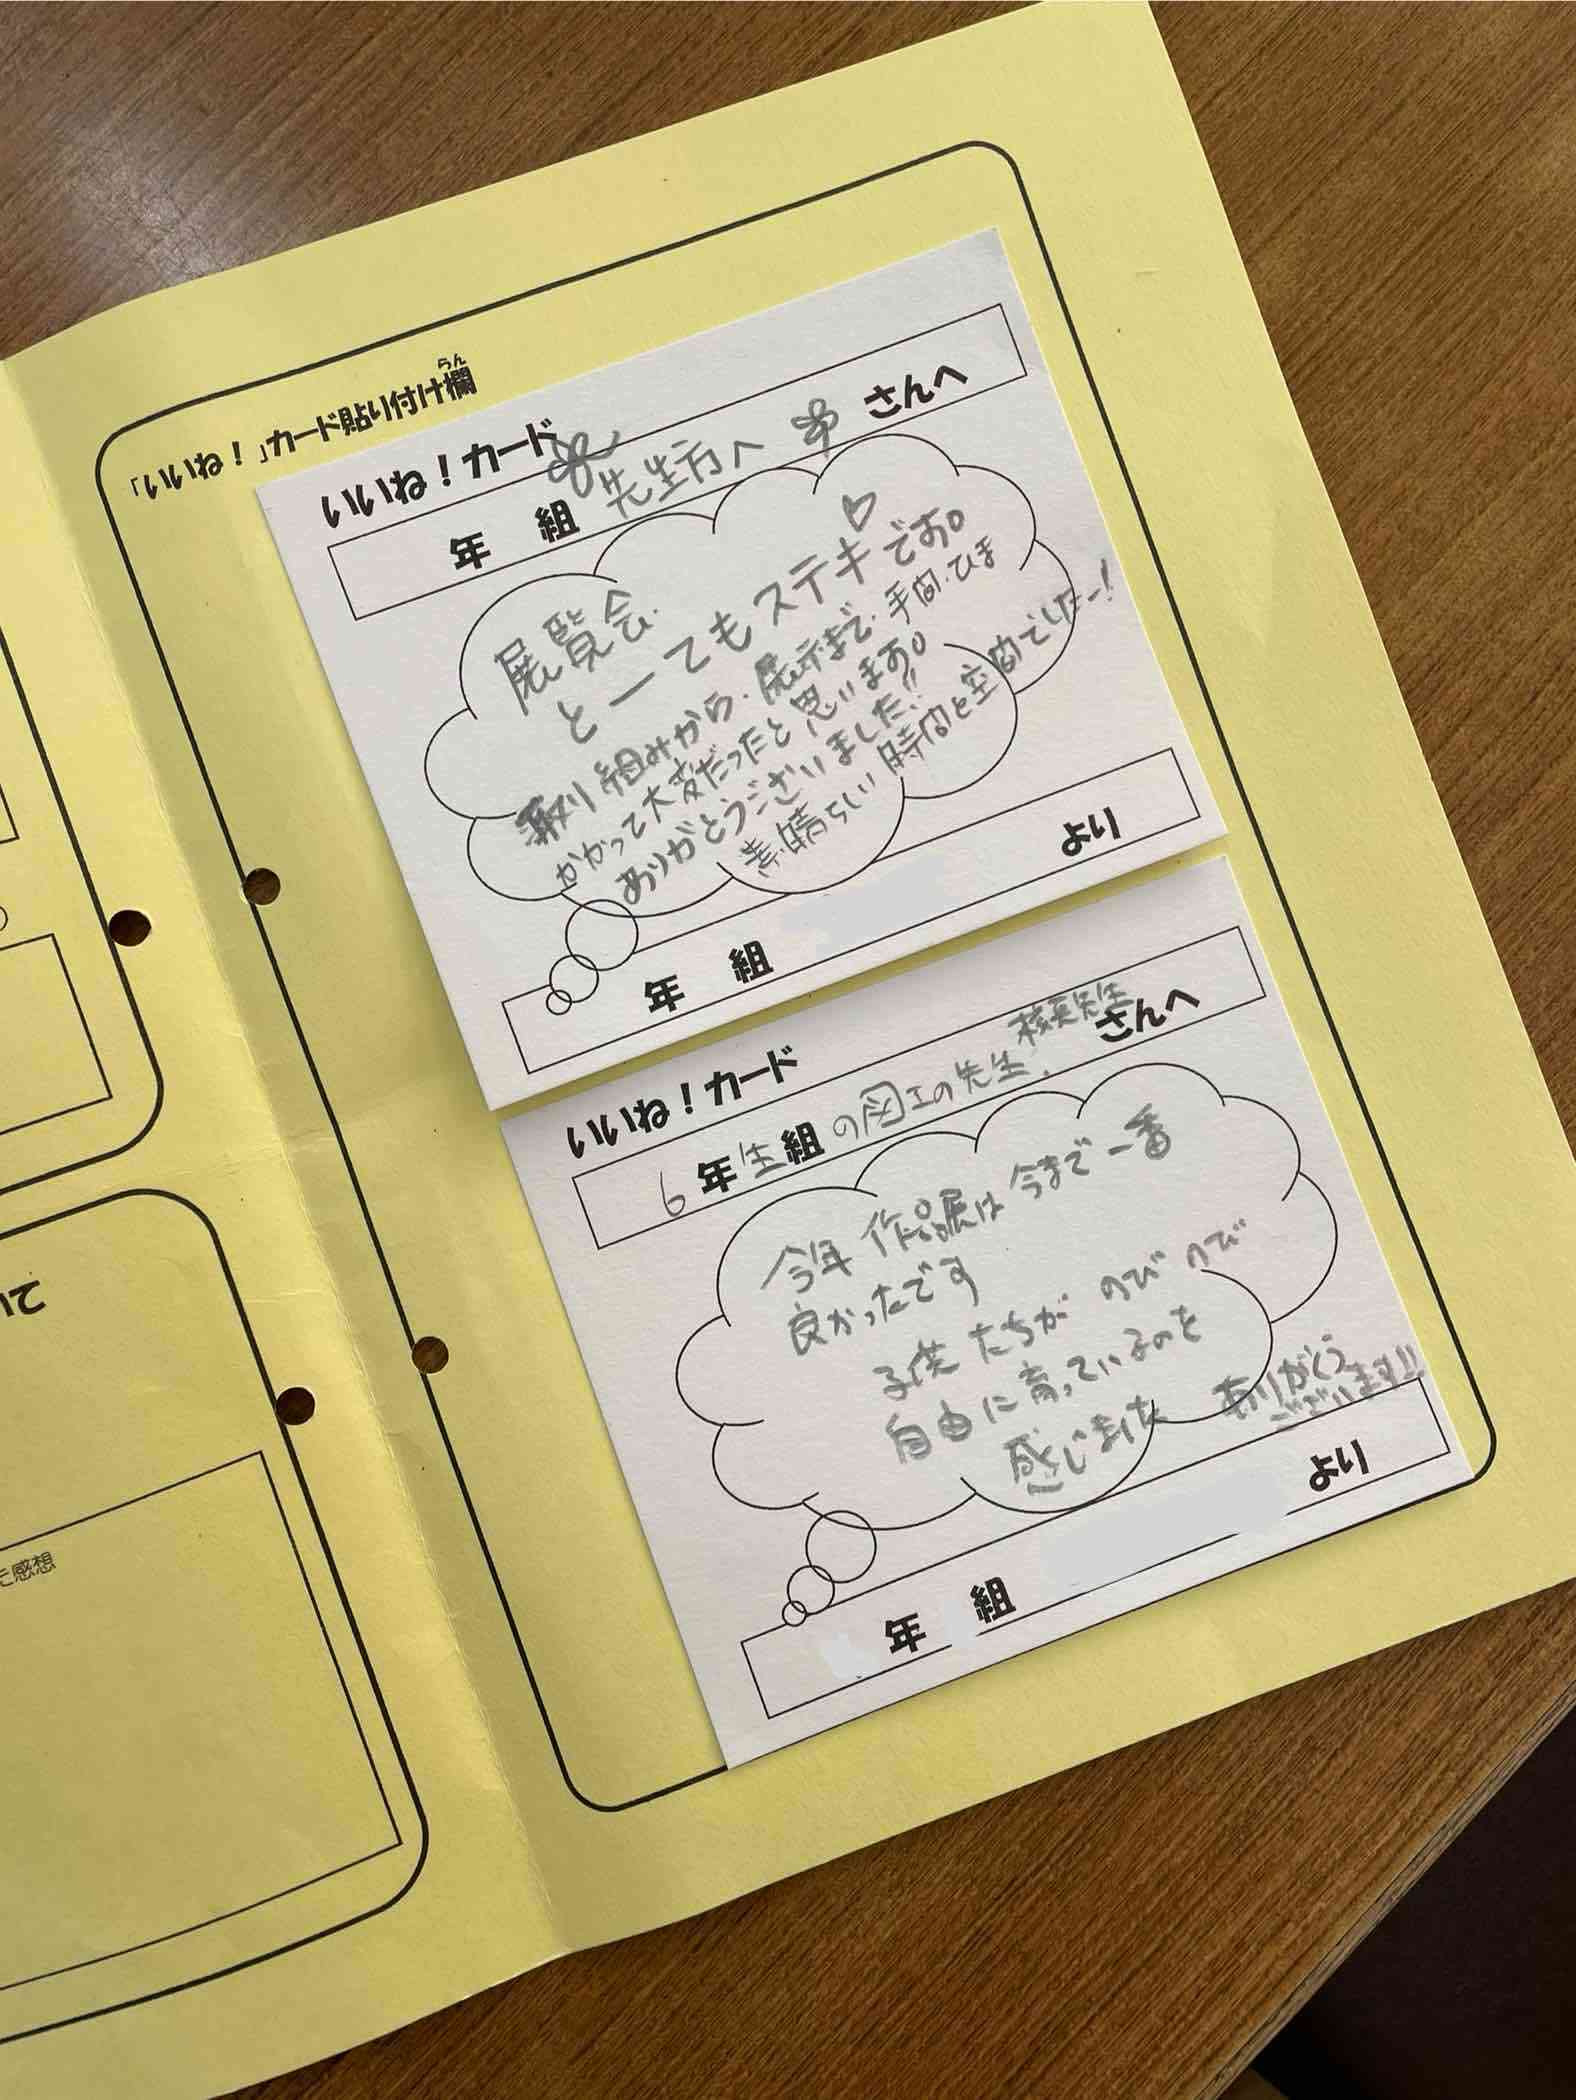 いて
た感想
「いいね！」カード貼り付け欄
らん
いいね！カード
年 組 先生方へ さんへ
展覧会、
とーってもステキです。
取り組みから、展示まで、手間・ひま
かかって大変だったと思います。
ありがとうございました!!
素晴らしい時間と空間でしたー！
年 組 より
いいね！カード
6年生組の図工の先生、校長先生さんへ
今年 作品展は今まで一番
良かったです
子供たちが のびのび
自由に育っているのを
感じました
ありがとう
ございます!!
年 組 より